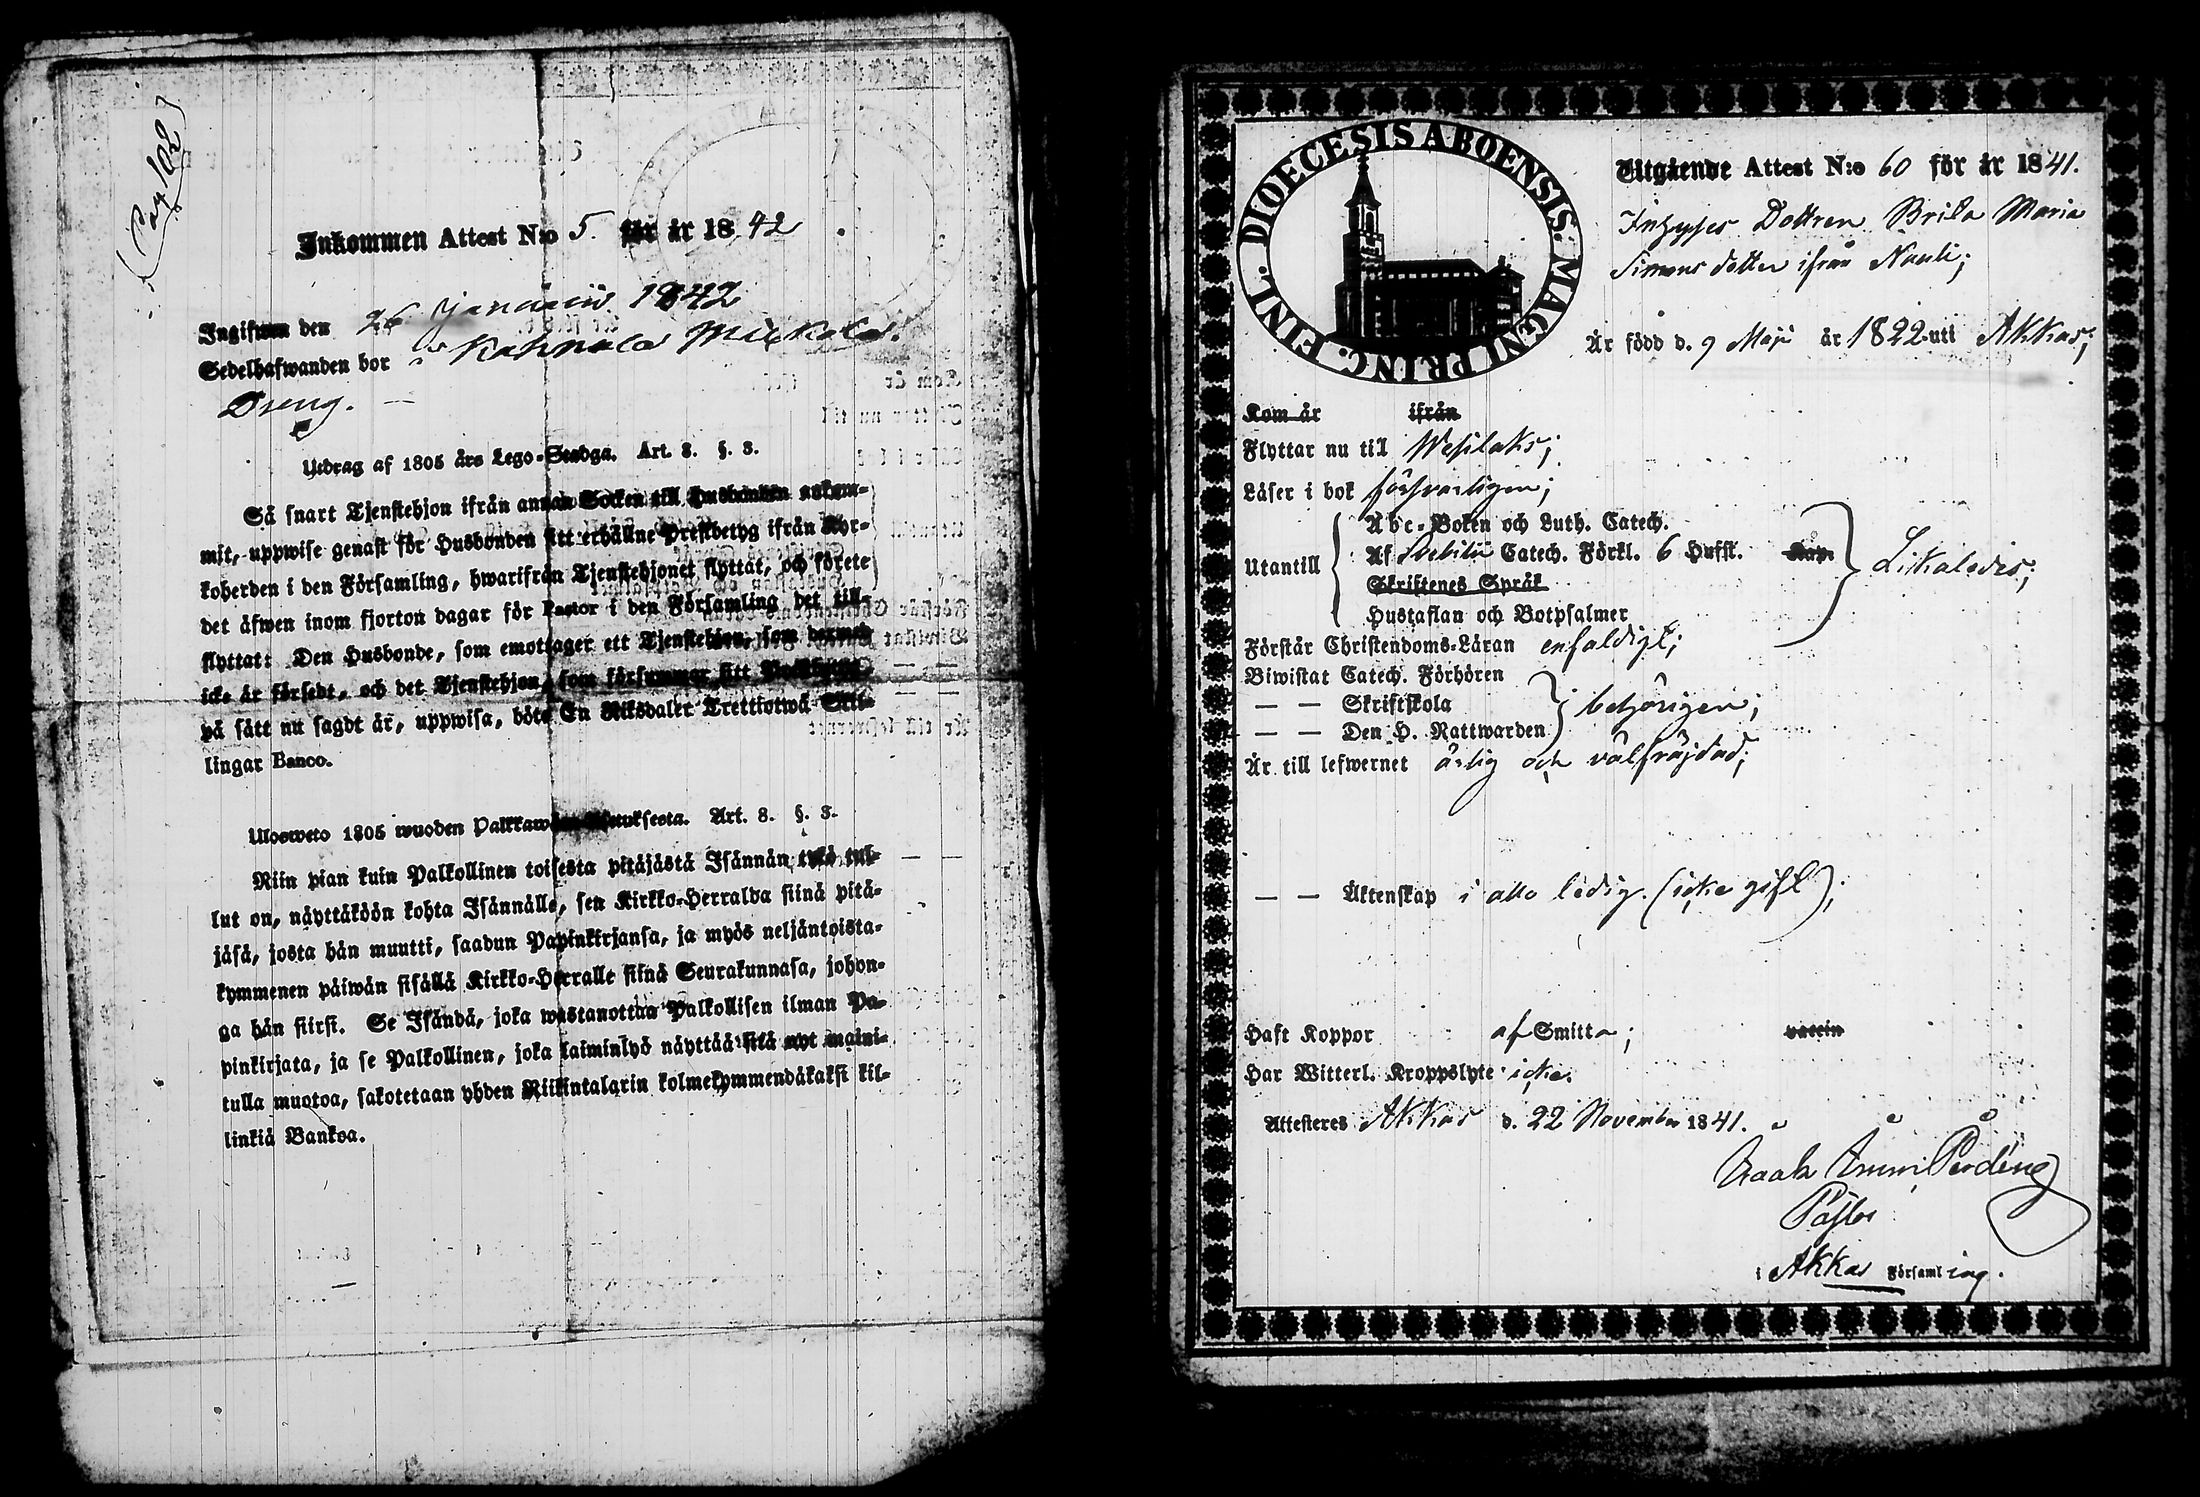 (Pag 102)
Inkommen Attest N:o 5. för år 1842
Ingifwen den 26 Januarii 1842
Sedelhafwanden bor i Kahnala Mickola.
Dreng. —
Utdrag af 1805 års Lego-Stadga. Art. 8. §. 3.
Så snart Tjenstehjon ifrån annan Socken till Husbonden ankom-
mit, uppwise genast för Husbonden sitt erhållne Prestbetyg ifrån Kyr-
koherden i den Församling, hwarifrån Tjenstehjonet flyttat, och förete
det äfwen inom fjorton dagar för Pastor i den Församling det till-
flyttat: Den Husbonde, som emottager ett Tjenstehjon, som dermed
icke är försedt, och det Tjenstehjon, som försummar sitt Prestbetyg
på sätt nu sagdt är, uppwisa, böte En Riksdaler Trettiotwå Skil-
lingar Banco.
Ulosweto 1805 wuoden Palkkawäen Asetuksesta. Art. 8. §. 3.
Niin pian kuin Palkollinen toisesta pitäjästä Isännän tykö tul-
lut on, näyttäköön kohta Isännälle, sen Kirkko-Herralda siinä pitä-
jäsä, josta hän muutti, saadun Papinkirjansa, ja myös neljäntoista-
kymmenen päiwän sisällä Kirkko-Herralle siinä Seurakunnasa, johon-
ga hän siirsi. Se Isändä, joka wastanottaa Palkollisen ilman Pa-
pinkirjata, ja se Palkollinen, joka laiminlyö näyttää sitä nyt maini-
tulla muotoa, sakotetaan yhden Riikintalarin kolmekymmendäkaksi kil-
linkiä Bankoa.
DIOECESIS ABOENSIS. MAGNI PRINC. FINL.
Utgående Attest N:o 60 för år 1841.
Inhyses Dottren Brita Maria
Simons dotter ifrån Nauli;
Är född d. 9 Maji år 1822 uti Akkas;
Kom år ifrån
Flyttar nu till Wesilaks;
Läser i bok försvarligen;
Utantill
Abc-Boken och Luth. Catech.
Af Svebilii Catech. Förkl. 6 Hufst. Kap.
Skriftenes Språk
Hustaflan och Botpsalmer
Likaledes;
Förstår Christendoms-Läran enfaldigt;
Biwistat Catech. Förhören
— — Skriftskola
— — Den H. Nattwarden
behörigen;
Är till lefwernet ärlig och välfräjdad;
— — Äktenskap i allo ledig. (icke gift);
Haft Koppor af Smitta; vaccin
Har Witterl. Kroppslyte icke.
Attesteres Akkas d. 22 November 1841.
Pastor
i Akkas Församling.